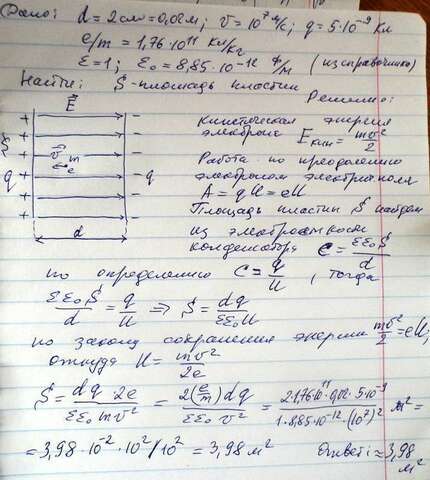 Дано: d = 2 см = 0,02 м; v = 10⁷ м/с; q = 5·10⁻⁹ Кл
e/m = 1,76·10¹¹ Кл/кг
ε = 1; ε₀ = 8,85·10⁻¹² Ф/м (из справочника)
Найти: S - площадь пластин
Решение:
E
+ + + + + +
- - - - - -
S
q
v m
e
-q
d
Кинетическая энергия
электрона Eкин = mv²/2
Работа по преодолению
электроном электрич. поля
A = qU = eU
Площадь пластин S найдем
из электроемкости
конденсатора C = εε₀S/d
по определению C = q/U, тогда
εε₀S/d = q/U ⇒ S = dq/εε₀U
по закону сохранения энергии mv²/2 = eU,
откуда U = mv²/2e
S = dq 2e/εε₀mv² = 2(e/m)dq/εε₀v² = 2·1,76·10¹¹·0,02·5·10⁻⁹/1·8,85·10⁻¹²·(10⁷)² м² =
= 3,98·10⁻²·10²/10² = 3,98 м² Ответ: ≈ 3,98 м²